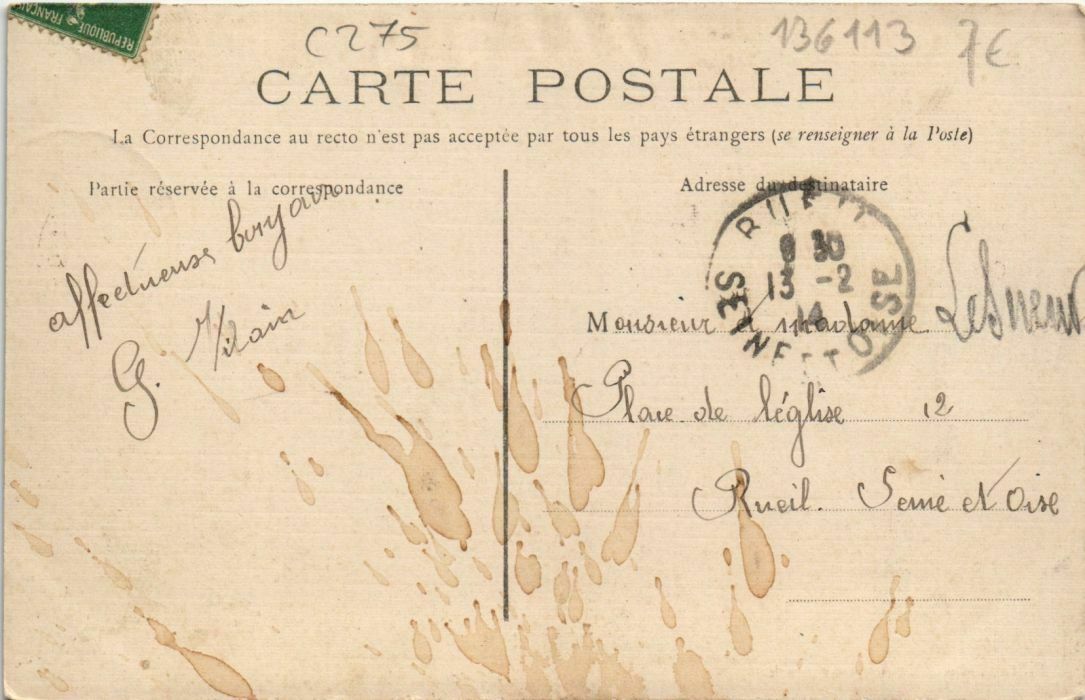 REPUBLIQUE FRANÇAI
C275
136113
7€
CARTE POSTALE
La Correspondance au recto n'est pas acceptée par tous les pays étrangers (se renseigner à la Poste)
Partie réservée à la correspondance
affectueuse
G. Vilain
Adresse du destinataire
RUEIL
8 30
13 -2
14
SEINE ET OISE
Monsieur & madame
Place de léglise 12
Rueil. Seine et Oise